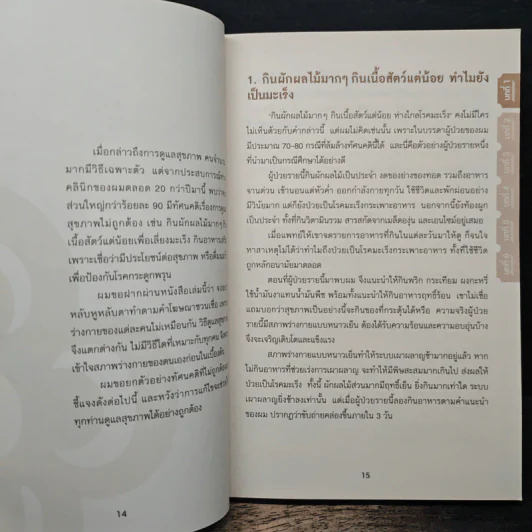 เมื่อกล่าวถึงการดูแลสุขภาพ คนจำนวน
มากมีวิธีเฉพาะตัว แต่จากประสบการณ์
คลินิกของผมตลอด 20 กว่าปีมานี้ พบว่า
ส่วนใหญ่กว่าร้อยละ 90 มีทัศนคติเรื่องการดูแล
สุขภาพไม่ถูกต้อง เช่น กินผักผลไม้มากๆ
เนื้อสัตว์แต่น้อยเพื่อเลี่ยงมะเร็ง กินอาหาร
เพราะเชื่อว่ามีประโยชน์ต่อสุขภาพ หรือดื่มนม
เพื่อป้องกันโรคกระดูกพรุน
ผมขอฝากผ่านหนังสือเล่มนี้ว่า
หลับหูหลับตาทำตามคำโฆษณาชวนเชื่อ
ร่างกายของแต่ละคนไม่เหมือนกัน วิธีดูแลสุขภาพ
จึงแตกต่างกัน ไม่มีวิธีใดที่เหมาะกับทุกคน
เข้าใจสภาพร่างกายของตนเองก่อนในเบื้องต้น
ผมขอยกตัวอย่างทัศนคติที่ไม่ถูกต้อง
ชี้แจงดังต่อไปนี้ และหวังว่าการแก้ไข
ทุกท่านดูแลสุขภาพได้อย่างถูกต้อง
14
1. กินผักผลไม้มากๆ กินเนื้อสัตว์แต่น้อย ทำไมยัง
เป็นมะเร็ง
"กินผักผลไม้มากๆ กินเนื้อสัตว์แต่น้อย ห่างไกลโรคมะเร็ง" คงไม่มีใคร
ไม่เห็นด้วยกับคำกล่าวนี้ แต่ผมไม่คิดเช่นนั้น เพราะในบรรดาผู้ป่วยของผม
มีประมาณ 70-80 กรณีที่ล้มล้างทัศนคตินี้ได้ และนี่คือตัวอย่างผู้ป่วยรายหนึ่ง
ที่นำมาเป็นกรณีศึกษาได้อย่างดี
ผู้ป่วยรายนี้กินผักผลไม้เป็นประจำ งดของย่างของทอด รวมถึงอาหาร
จานด่วน เข้านอนแต่หัวค่ำ ออกกำลังกายทุกวัน ใช้ชีวิตและพักผ่อนอย่าง
มีวินัยมาก แต่ก็ยังป่วยเป็นโรคมะเร็งกระเพาะอาหาร นอกจากนี้ยังท้องผูก
เป็นประจำ ทั้งที่กินวิตามินรวม สารสกัดจากเมล็ดองุ่น และเอนไซม์อยู่เสมอ
เมื่อแพทย์ให้เขาจดรายการอาหารที่กินในแต่ละวันมาให้ดู ก็จนใจ
หาสาเหตุไม่ได้ว่าทำไมถึงป่วยเป็นโรคมะเร็งกระเพาะอาหาร ทั้งที่ใช้ชีวิต
ถูกหลักอนามัยมาตลอด
ตอนที่ผู้ป่วยรายนี้มาพบผม จึงแนะนำให้กินพริก กระเทียม ผงกะหรี่
ใช้น้ำมันงาแทนน้ำมันพืช พร้อมทั้งแนะนำให้กินอาหารฤทธิ์ร้อน เขาไม่เชื่อ
แถมบอกว่าสุขภาพเป็นอย่างนี้จะกินของที่กระตุ้นได้หรือ ความจริงผู้ป่วย
รายนี้มีสภาพร่างกายแบบหนาวเย็น ต้องได้รับความร้อนและความอบอุ่นบ้าง
จึงจะเจริญเติบโตและแข็งแรง
สภาพร่างกายแบบหนาวเย็นทำให้ระบบเผาผลาญช้ามากอยู่แล้ว หาก
ไม่กินอาหารที่ช่วยเร่งการเผาผลาญ จะทำให้มีพิษสะสมมากเกินไป ส่งผลให้
ป่วยเป็นโรคมะเร็ง ทั้งนี้ ผักผลไม้ส่วนมากมีฤทธิ์เย็น ยิ่งกินมากเท่าใด ระบบ
เผาผลาญยิ่งช้าลงเท่านั้น แต่เมื่อผู้ป่วยรายนี้ลองกินอาหารตามคำแนะนำ
ของผม ปรากฏว่าขับถ่ายคล่องขึ้นภายใน 3 วัน
15
บทที่ 1
บทที่ 2
บทที่ 3
บทที่ 4
บทที่ 5
บทที่ 6